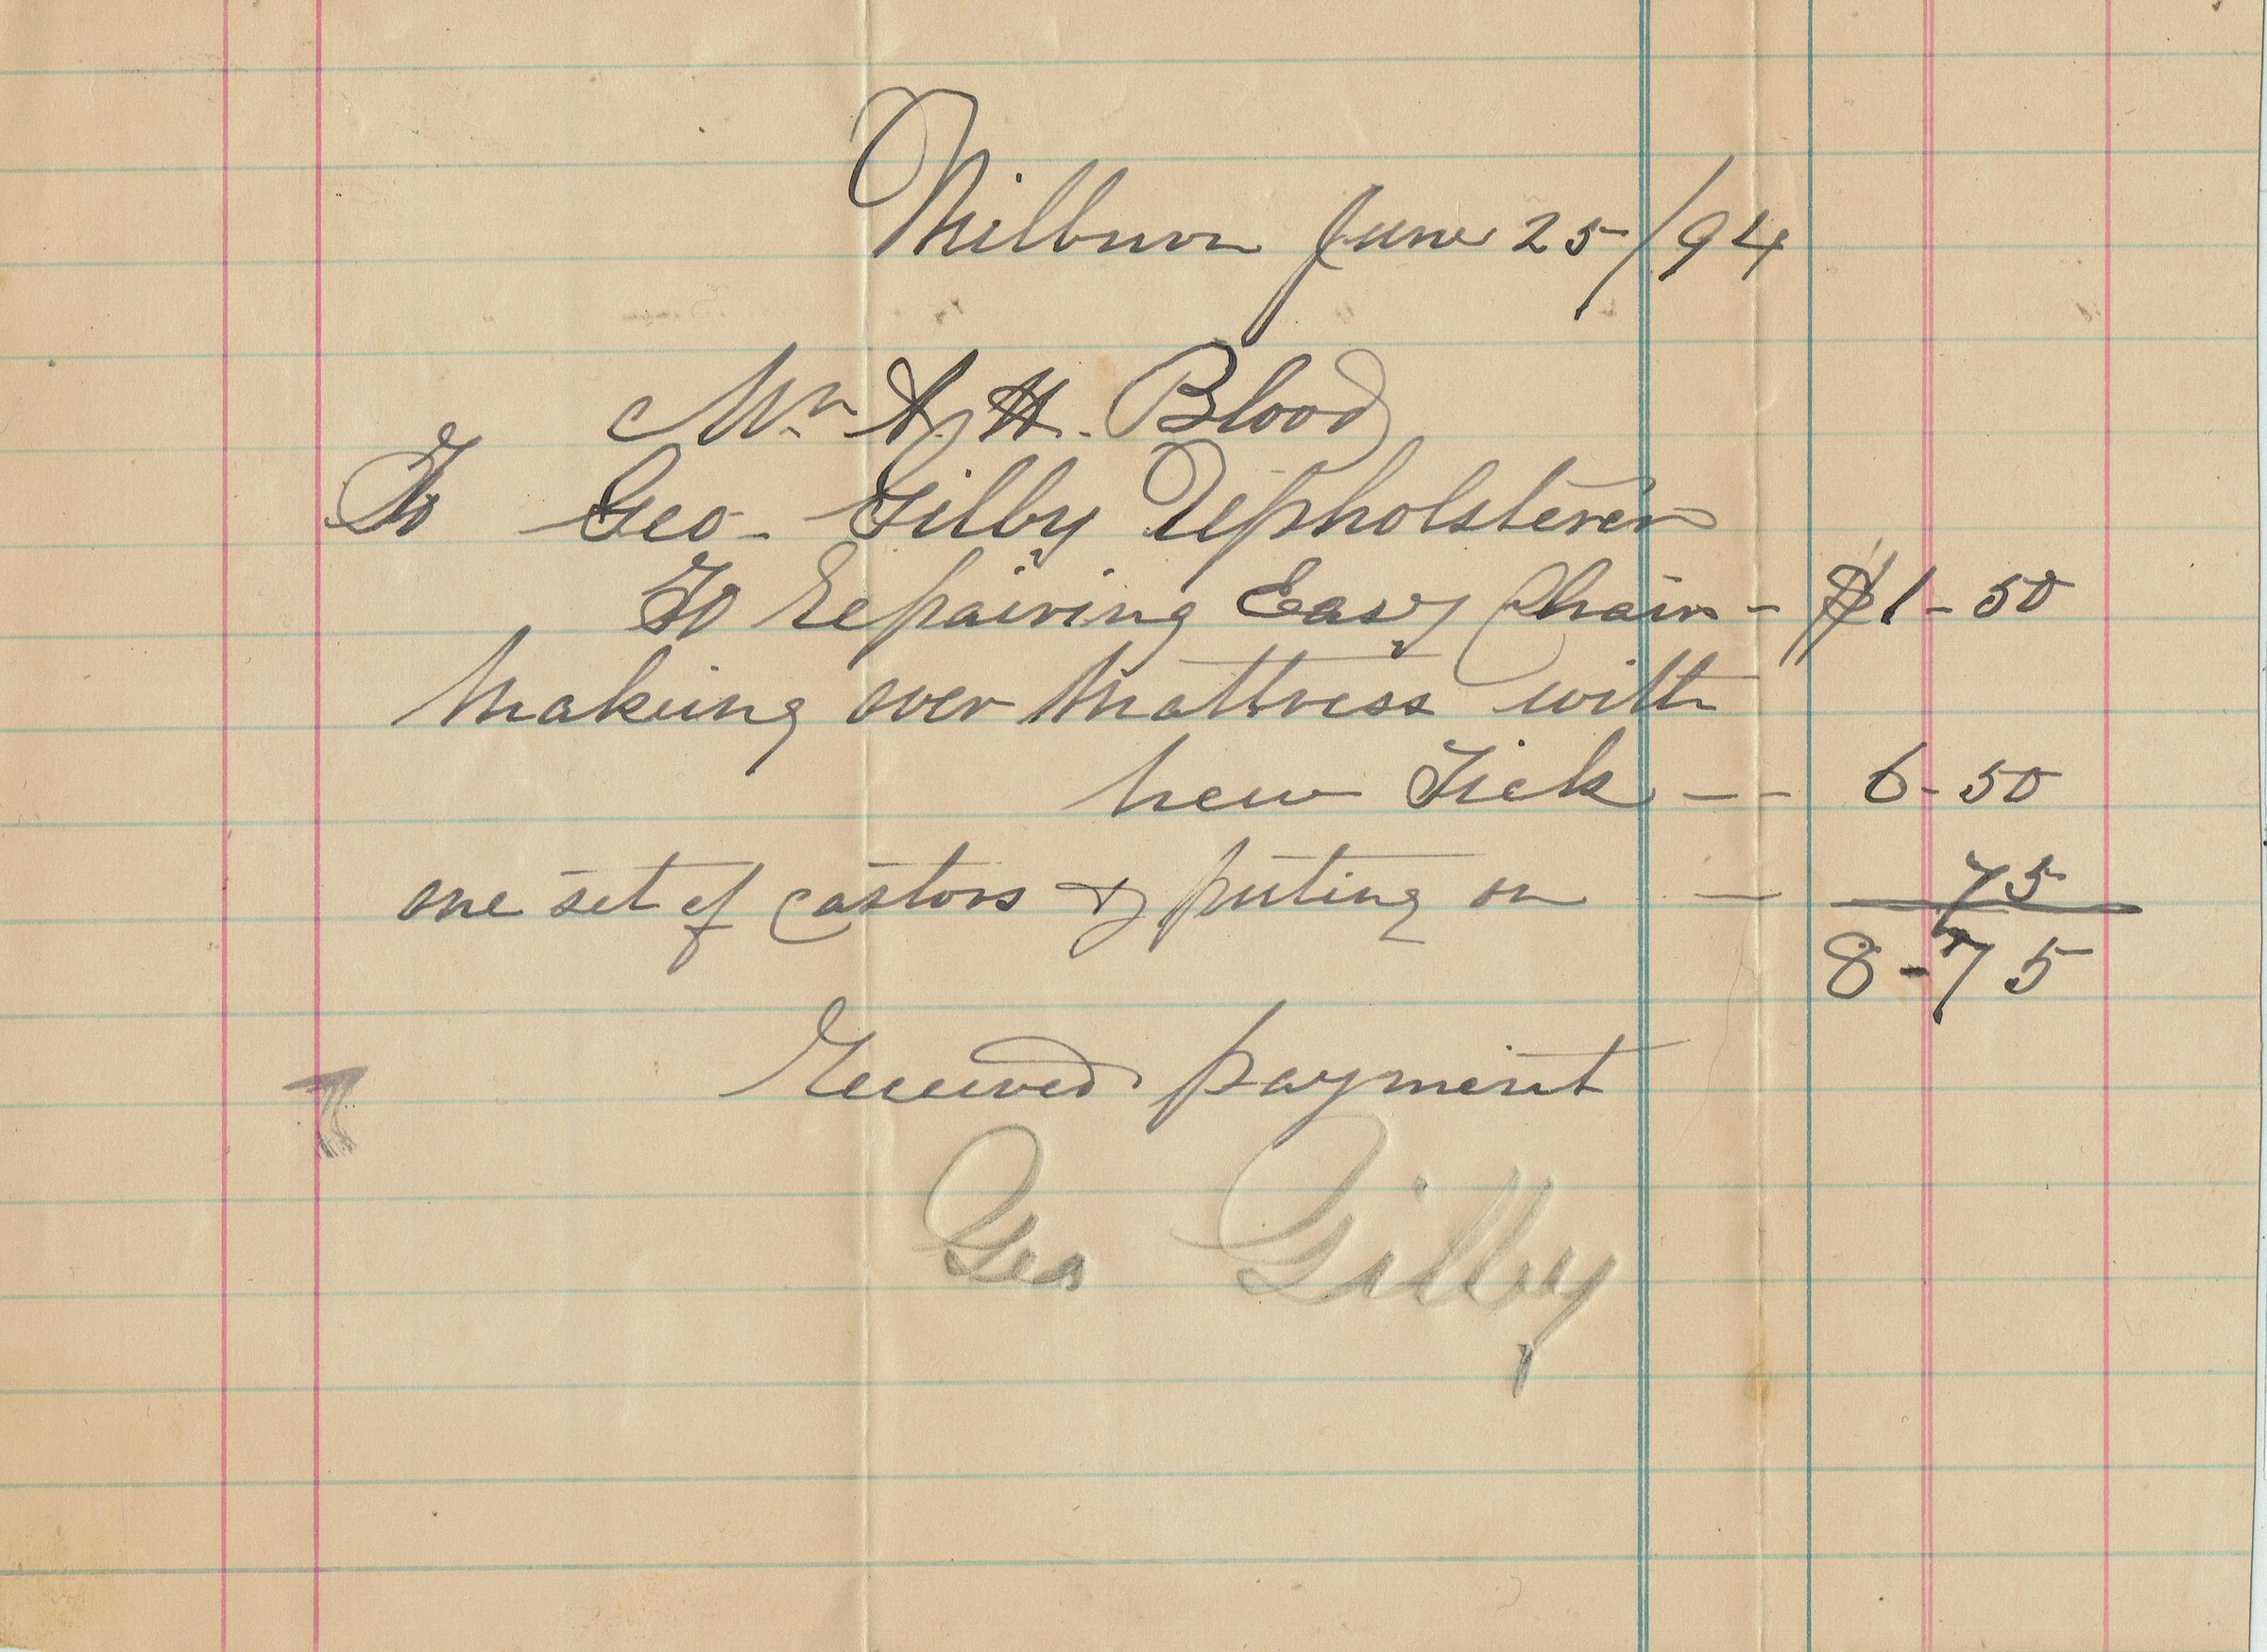 Milburn June 25/94
Mr. A. H. Blood
To Geo- Gilby Upholsterer
To Repairing Easy Chair - $1-50
Making over Mattress with
new Tick -- 6-50
one set of castors & puting on - 75
8-75
Received payment
Geo Gilby